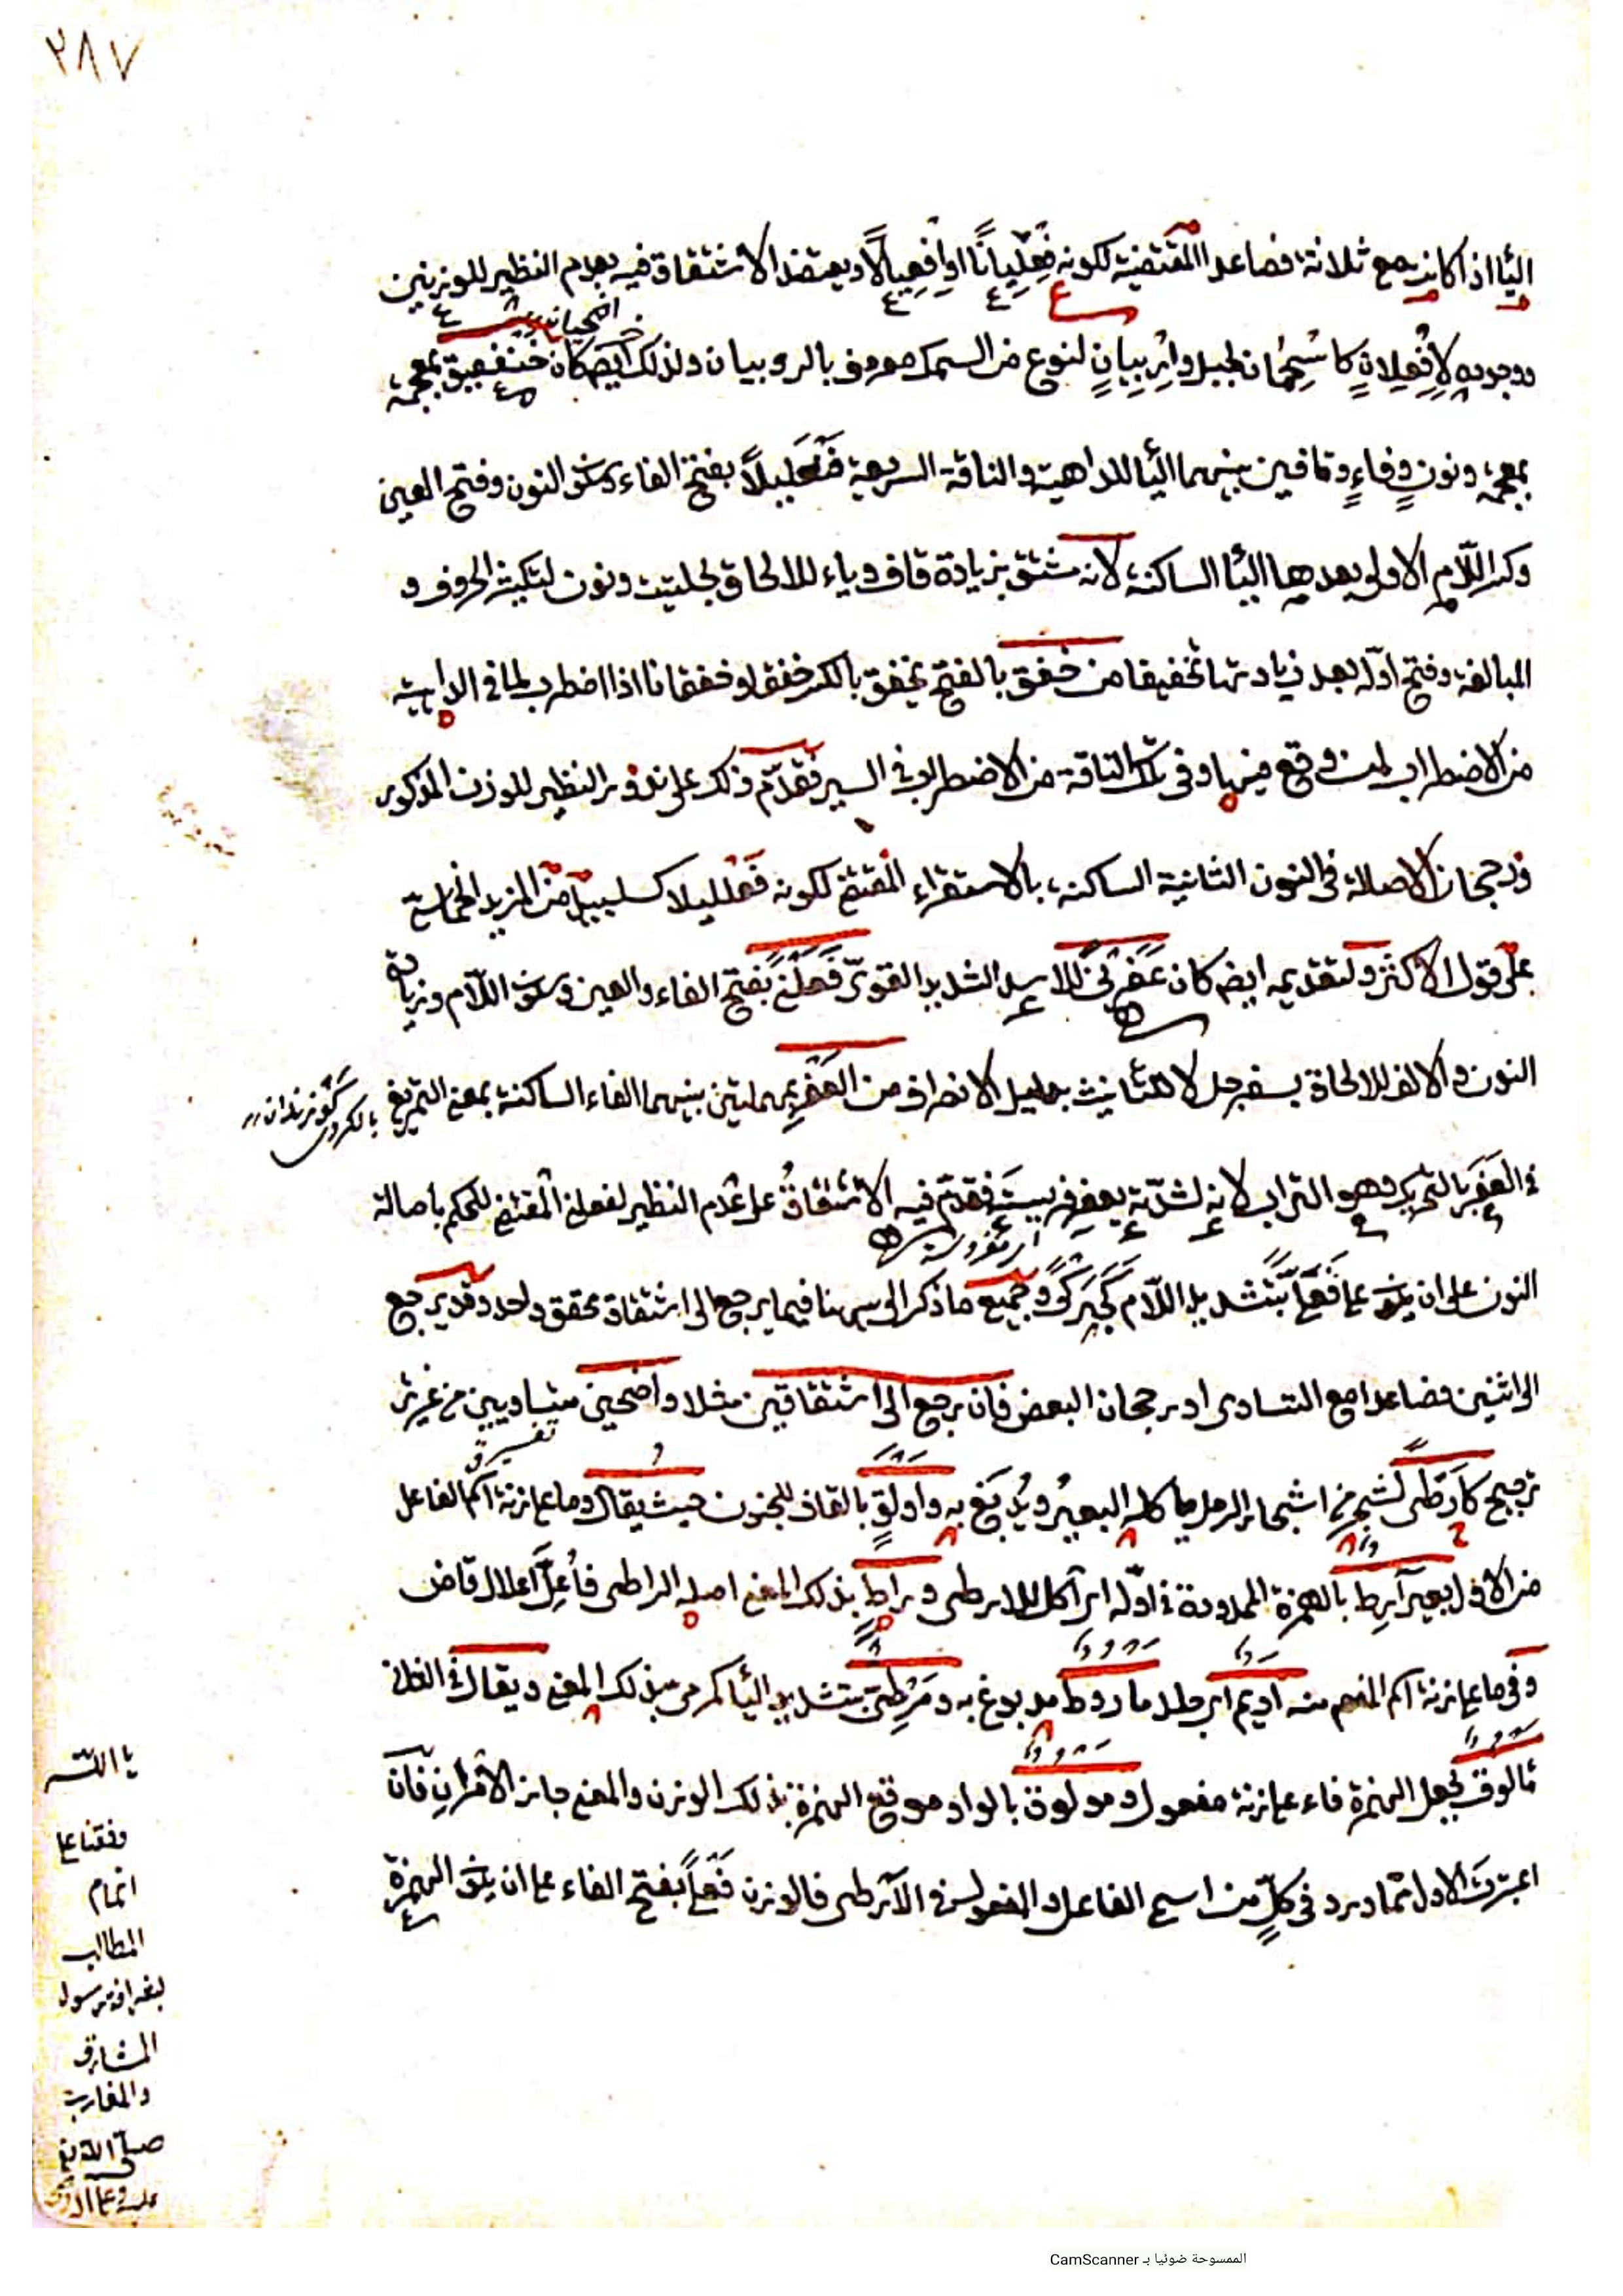 ٢٨٧
اليا اذا كانت مع ثلاثة فصاعدا المقتضية لكونه فِعْلِيانًا او اِفْعِيالًا ويعتضد الاشتقاق فيه بعدم النظير للوزنين
ووجوده لاِفْعِلانٍ كاسْحِمان لجبل واِرْبِيانٍ لنوع من السمك معروف بالروبيان ولذلك ايض كان خنفقيق بمعجمة
بمعجمة ونون وفاءٍ وقافين بينهما اليا للداهية والناقة السريعة فَنْعَليلاً بفتح الفاء وسكون النون وفتح العين
وكسر اللّام الاولى بعدها اليا الساكنة لانه مشتق بزيادة قاف وياء للالحاق بجلتيت ونون لتكثير الحروف و
المبالغة وفتح اوّله بعد زيادتها تخفيفا من خفق بالفتح يخفق بالكسر خفقا وخفقانا اذا اضطرب لما في الداهية
من الاضطراب لمن وقع فيها وفى تلك الناقة من الاضطراب في السير فقدّم ذلك على ندور النظير للوزن المذكور
ورجحان الاصالة في النون الثانية الساكنة بالاستقراء المقتضي لكونه فَعْلليلا كسلسبيل من المزيد الخماسي
على قول الاكثر ولتقديمه ايض كان عَفَرْنى للاسد الشديد القوىّ فَعَلْنىً بفتح الفاء والعين وسكون اللّام وزيادة
النون والالف للالحاق بسفرجل لا للتأنيث بدليل الانصراف من العَفْرِ بمهملتين بينهما الفاء الساكنة بمعنى التمريغ
في العَفَرَ بالتحريك وهو التراب لانه لشدّته يعفر فريسته فقدم فيه الاشتقاق على عدم النظير لفعلنى المقتضي للحكم باصالة
النون على ان يكون على فَعَلّىً بتشديد اللّام كجَبَرْكىً وجميع ما ذكر الى هنا فيما يرجع الى اشتقاق محقق واحد وقد يرجع
الى اثنين فصاعدا مع التساوى او رجحان البعض فان رجع الى اشتقاقين مثلا واضحين متساويين من غير
ترجيح كاَرْطى لشجر من اشجار الرمل ياكله البعير ويُدبَغ به واولقٍ بالقاف للجنون حيث يقال وما على زنة اسم الفاعل
من الاول بعير آرِط بالهمزة الممدودة في اوّله اى آكل للارطى و راطٍ بذلك المعنى اصله الراطى فاُعِلَّ اعلال قاض
وفى ما على زنة اسم المفعول منه اديم اى جلد ماروط مدبوغ به و مَرْطِىّ بتشديد اليا كمرمىّ بذلك المعنى ويقال في الثانى
مالوق بجعل الهمزة فاء على زنة مفعول ومولوق بالواو موقع الهمزة بذلك الوزن والمعنى جاز الامران فان
اعتبرت الاول مما ورد فى كلٍّ من اسمي الفاعل والمفعول من الارطى فالوزن فَعْلىً بفتح الفاء على ان يكون الهمزة
يا الله
وفقنا على
اتمام
المطالب
المشارق
والمغارب
الممسوحة ضوئيا بـ CamScanner